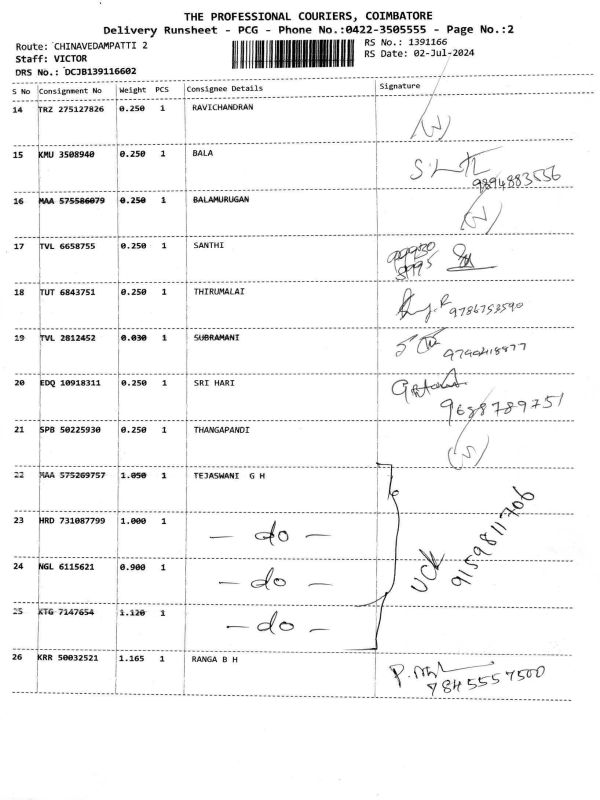 THE PROFESSIONAL COURIERS, COIMBATORE
Delivery Runsheet - PCG - Phone No.:0422-3505555 - Page No.:2
Route: CHINAVEDAMPATTI 2
RS No.: 1391166
Staff: VICTOR
RS Date: 02-Jul-2024
DRS No.: DCJB139116602
S No Consignment No Weight PCS Consignee Details Signature
14 TRZ 275127826 0.250 1 RAVICHANDRAN
15 KMU 3508940 0.250 1 BALA
9894883556
16 MAA 575586079 0.250 1 BALAMURUGAN
17 TVL 6658755 0.250 1 SANTHI
18 TUT 6843751 0.250 1 THIRUMALAI
9786753590
19 TVL 2812452 0.030 1 SUBRAMANI
20 EDQ 10918311 0.250 1 SRI HARI
9688789751
21 SPB 50225930 0.250 1 THANGAPANDI
22 MAA 575269757 1.050 1 TEJASWANI G H
23 HRD 731087799 1.000 1 - do -
24 NGL 6115621 0.900 1 - do -
UCK
9159811706
25 KTG 7147654 1.120 1 - do -
26 KRR 50032521 1.165 1 RANGA B H
7845557500